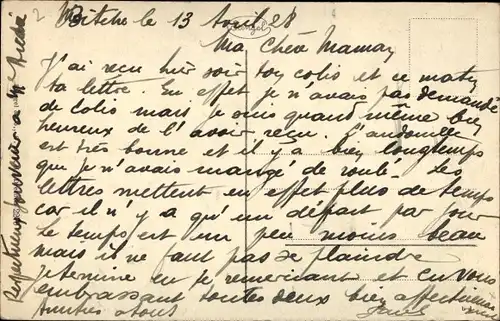 Bitche le 13 Avril 28
Ma Chère Maman
J'ai reçu hier soir ton colis et ce matin
ta lettre. En effet je n'avais pas demandé
de colis mais je suis quand même bien
heureux de l'avoir reçu. L'andouille
est très bonne et il y a bien longtemps
que je n'avais mangé de roulé. Les
lettres mettent en effet plus de temps
car il n'y a qu'un départ par jour
Le temps est un peu moins beau
mais il ne faut pas se plaindre
Je termine en te remerciant et en vous
embrassant toutes deux bien affectueusement
Amitiés à tous
Respectueux souvenirs à Mme